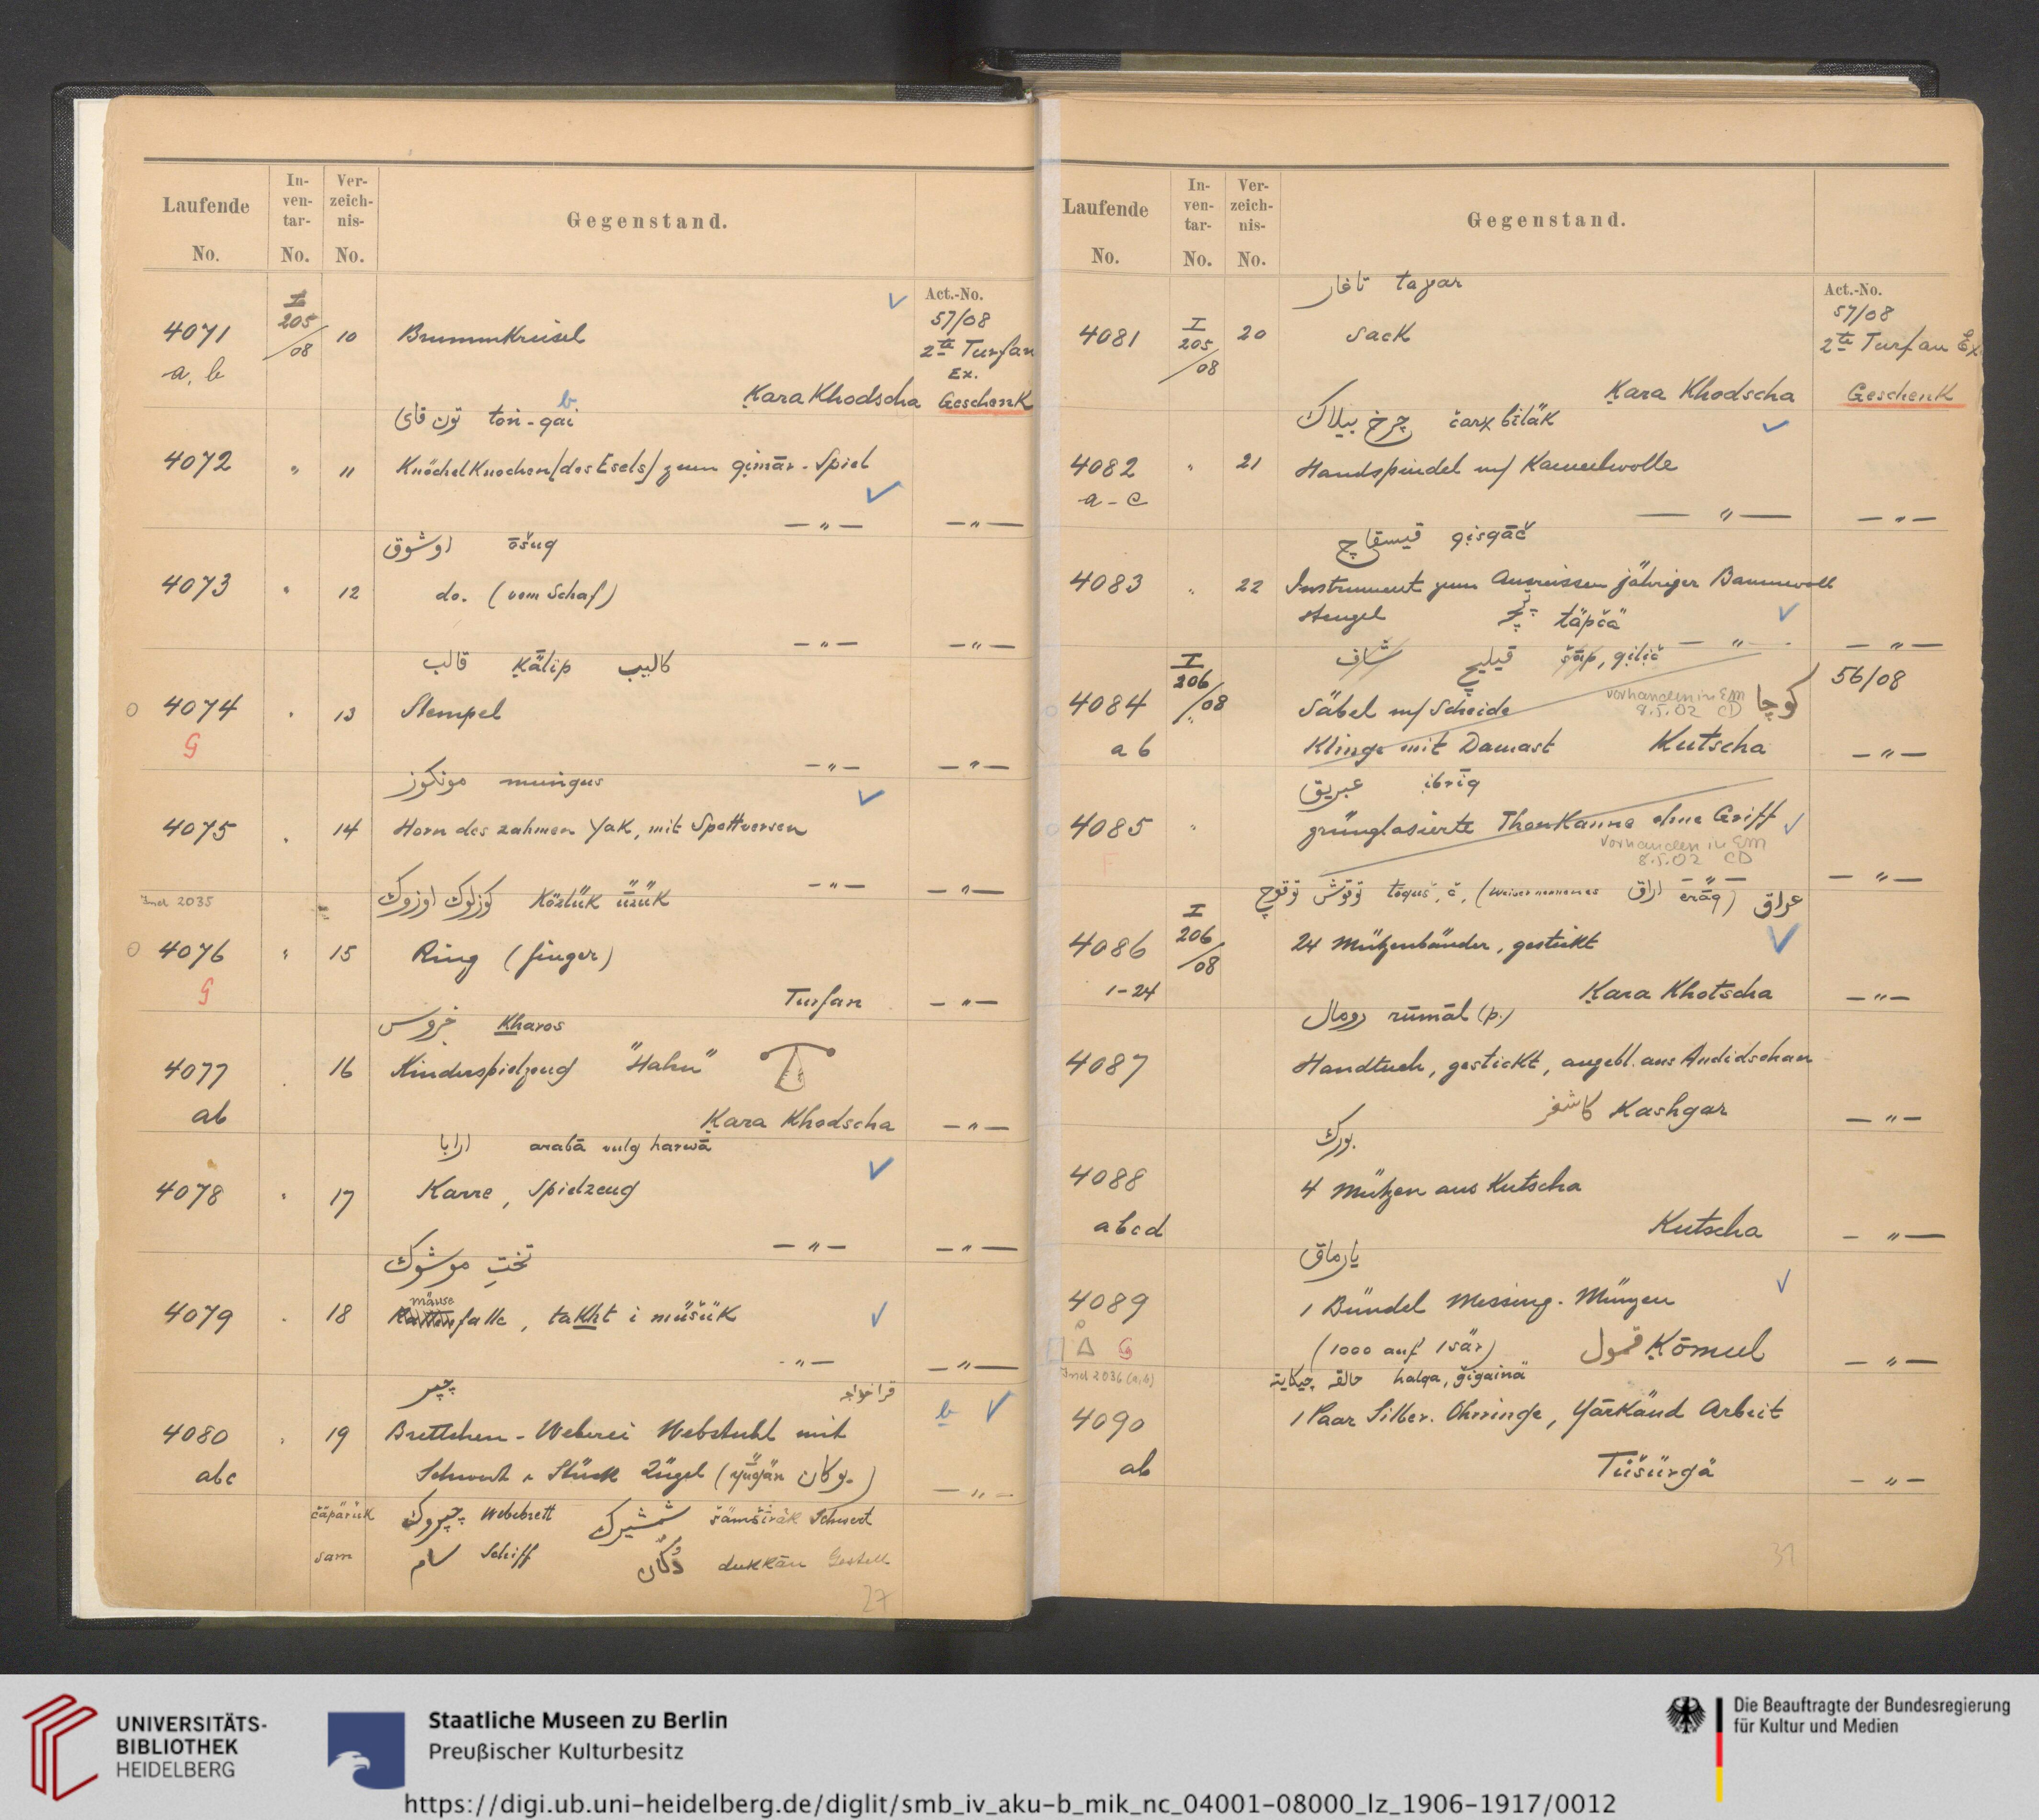 Laufende
No.
In-
ven-
tar-
No.
Ver-
zeich-
nis-
No.
Gegenstand.
Act.-No.
57/08
2te Turfan
Ex.
Geschenk
4071
a, b
I
205
/08
10
Brummkreisel
Kara Khodscha
تون قای ton-qai
b
4072 " 11 Knöchelknochen (des Esels) zum qimār-Spiel
— " — — " —
اوشوق ōšuq
4073 " 12 do. (vom Schaf)
— " — — " —
قالب Kālip كاليب
4074 " 13 Stempel
G
— " — — " —
مونكوز mungus
4075 " 14 Horn des zahmen Yak, mit Spottversen
— " — — " —
كوزلوك اوزوك Közlük üzük
Ind 2035
4076 " 15 Ring (Finger)
G
Turfan — " —
خروس Kharos
4077 16 Kinderspielzeug "Hahn"
ab
Kara Khodscha — " —
ارابا arabā vulg harwā
4078 " 17 Karre, Spielzeug
— " — — " —
تخت موشوك
mäuse
4079 18 falle, takht i müšük
— " — — " —
چپر قراخواجه
b
4080 19 Brettchen-Weberei Webstuhl mit
abc Schwert u Stück Zügel (yügän يوكان)
— " —
čäpärük چپروك Webebrett شمشيرك šämširäk Schwert
sam سام Schiff دكان dukkān Gestell
27
Laufende
No.
In-
ven-
tar-
No.
Ver-
zeich-
nis-
No.
Gegenstand.
Act.-No.
57/08
2te Turfan Ex
Geschenk
تاغار taγar
4081 I 205/08 20 Sack
Kara Khodscha
چرخ بيلاك čarχ biläk
4082 " 21 Handspindel m/ Kamelwolle
a-c
— " — — " —
قيسقاچ qisqāč
4083 " 22 Instrument zum Ausreissen jähriger Baumwoll
Stengel täpčä
— " — — " —
شاف قيليچ šāp, qilič
I
206
/08
56/08
4084 Säbel m/ Scheide
vorhanden in EM
8.5.02 CD
كوچا
ab Klinge mit Damast Kutscha — " —
عبريق ibrīq
4085 " grünglasierte Thonkanne ohne Griff
F
vorhanden in EM
8.5.02 CD
— " — — " —
توقوش توقوچ toquš, č, اراق erāq) عراق
4086 I 206/08 24 Mützenbänder, gestickt
1-24
Kara Khotscha — " —
رومال rūmāl (p.)
4087 Handtuch, gestickt, angebl. aus Andidschan
كاشغر Kashgar — " —
بورك
4088 4 Mützen aus Kutscha
abcd
Kutscha — " —
يارماق
4089 1 Bündel Messing-Münzen
G
(1000 auf 1 sär) قمول Kōmul — " —
Ind 2036 (a,b)
حالقه چيكاينه halqa, ǧigainä
4090 1 Paar Silber. Ohrringe, Yārkänd Arbeit
ab
Tüšürgä — " —
31
UNIVERSITÄTS-
BIBLIOTHEK
HEIDELBERG
Staatliche Museen zu Berlin
Preußischer Kulturbesitz
Die Beauftragte der Bundesregierung
für Kultur und Medien
https://digi.ub.uni-heidelberg.de/diglit/smb_iv_aku-b_mik_nc_04001-08000_lz_1906-1917/0012